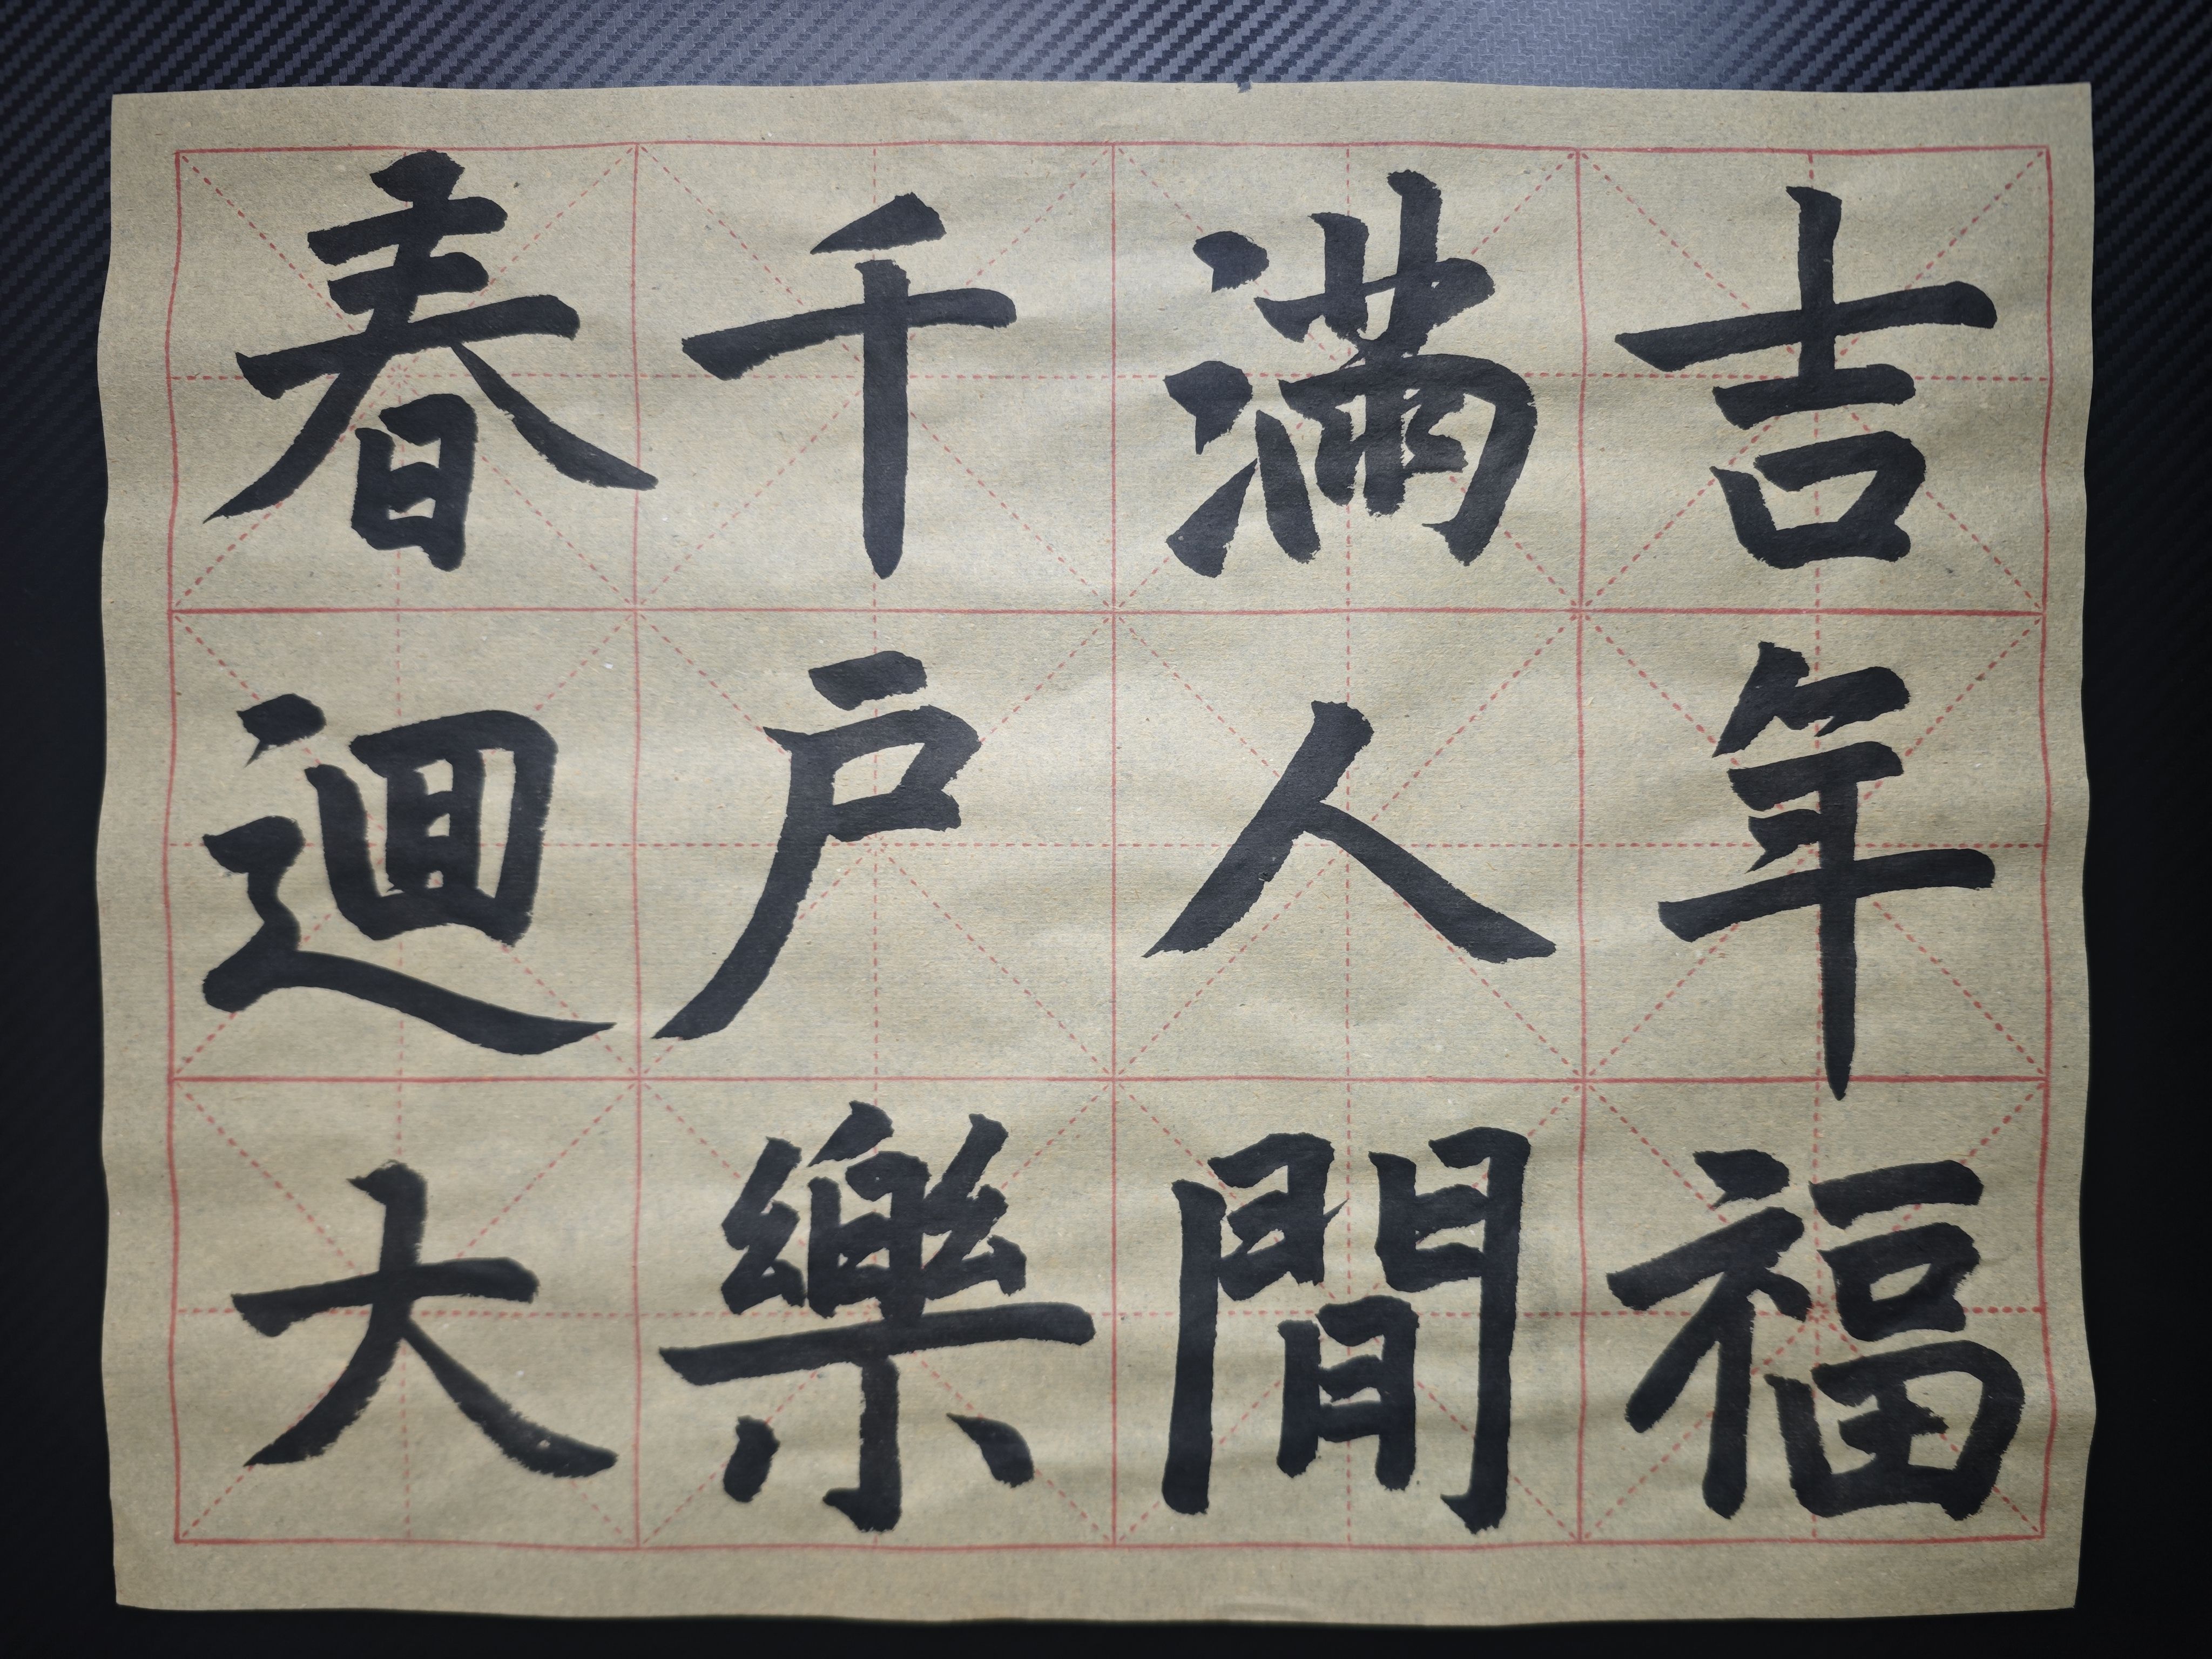 吉年福
滿人間
千户樂
春迴大